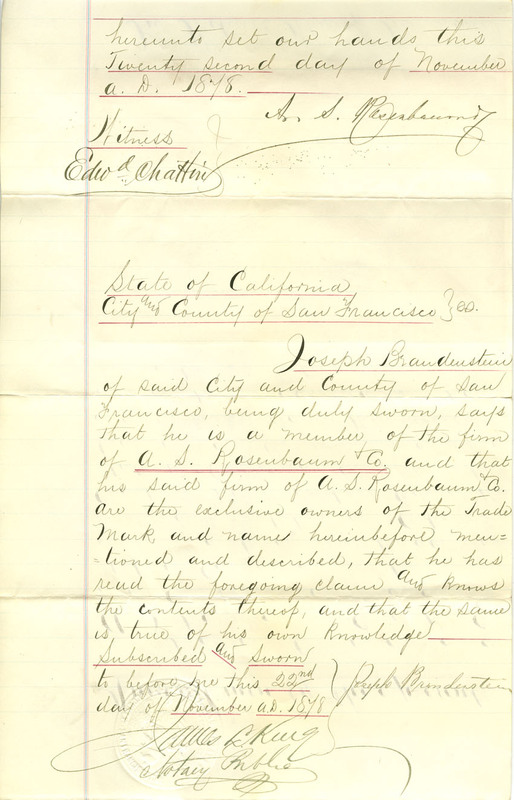 hereunto set our hands this
Twenty second day of November
A. D. 1878.
A. S. Rosenbaum
Witness
Edwd Chattin
State of California
City and County of San Francisco } ss.
Joseph Brandenstein
of said City and County of San
Francisco, being duly sworn, says
that he is a member, of the firm
of A. S. Rosenbaum & Co. and that
his said firm of A. S. Rosenbaum & Co.
are the exclusive owners of the Trade
Mark, and name hereinbefore men=
=tioned and described, that he has
read the foregoing claim and knows
the contents thereof, and that the same
is true of his own knowledge
Subscribed and sworn
to before me this 22nd } Joseph Brandenstein
day of November A.D. 1878
James L. King
Notary Public